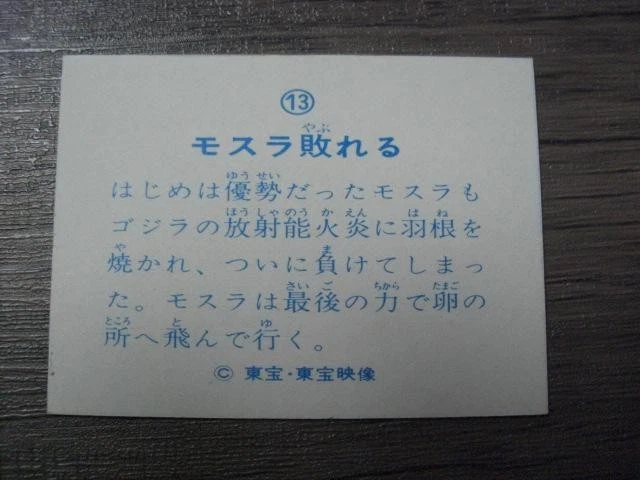 ⑬
モスラ敗れる
はじめは優勢だったモスラも
ゴジラの放射能火炎に羽根を
焼かれ、ついに負けてしまっ
た。モスラは最後の力で卵の
所へ飛んで行く。
© 東宝・東宝映像